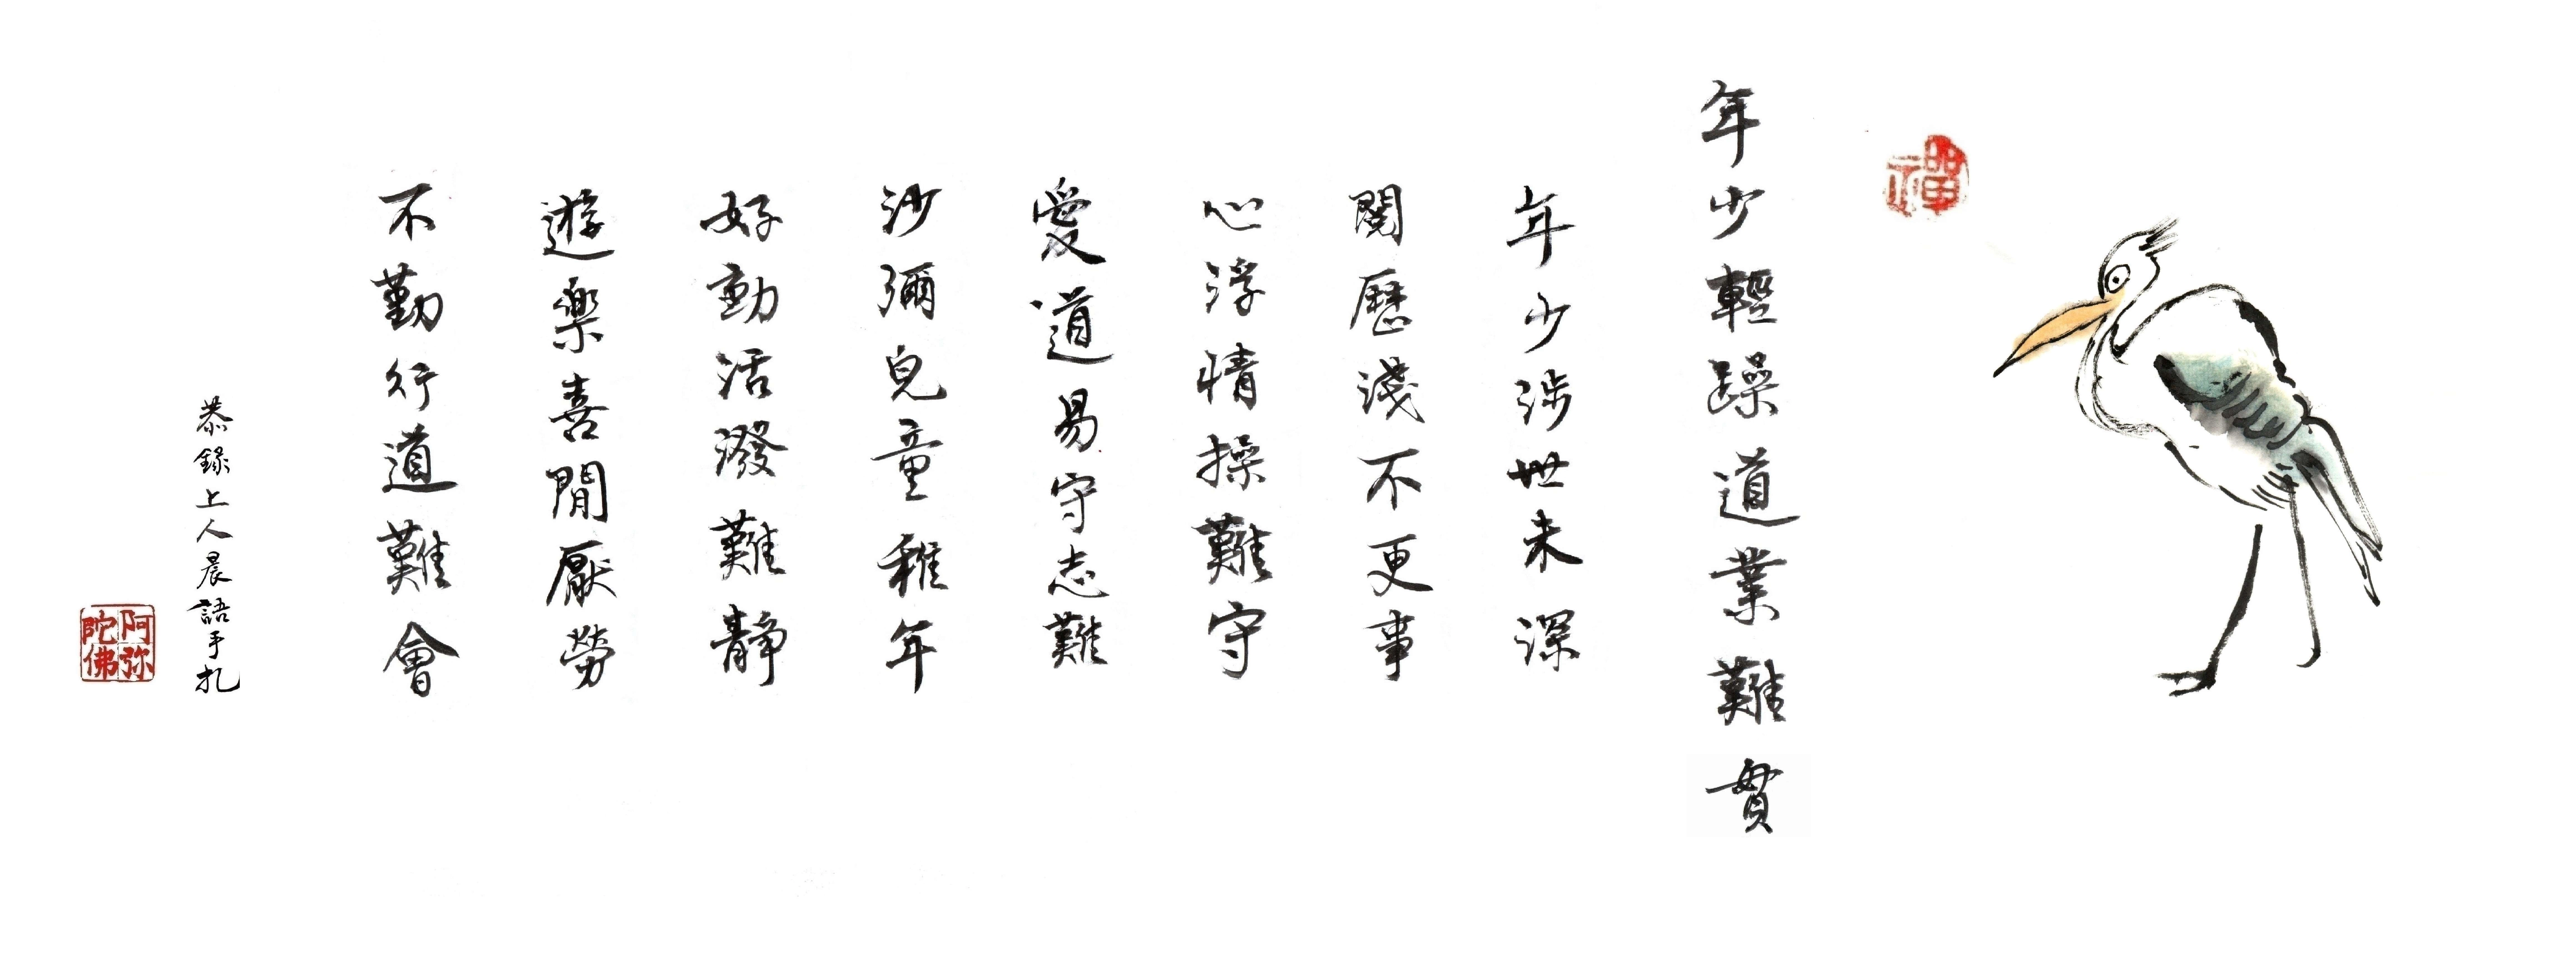 禪
年少輕躁道業難貫
年少涉世未深
閱歷淺不更事
心浮情操難守
愛道易守志難
沙彌兒童稚年
好動活潑難靜
遊樂喜閒厭勞
不勤行道難會
恭錄上人晨語手札
阿弥
陀佛